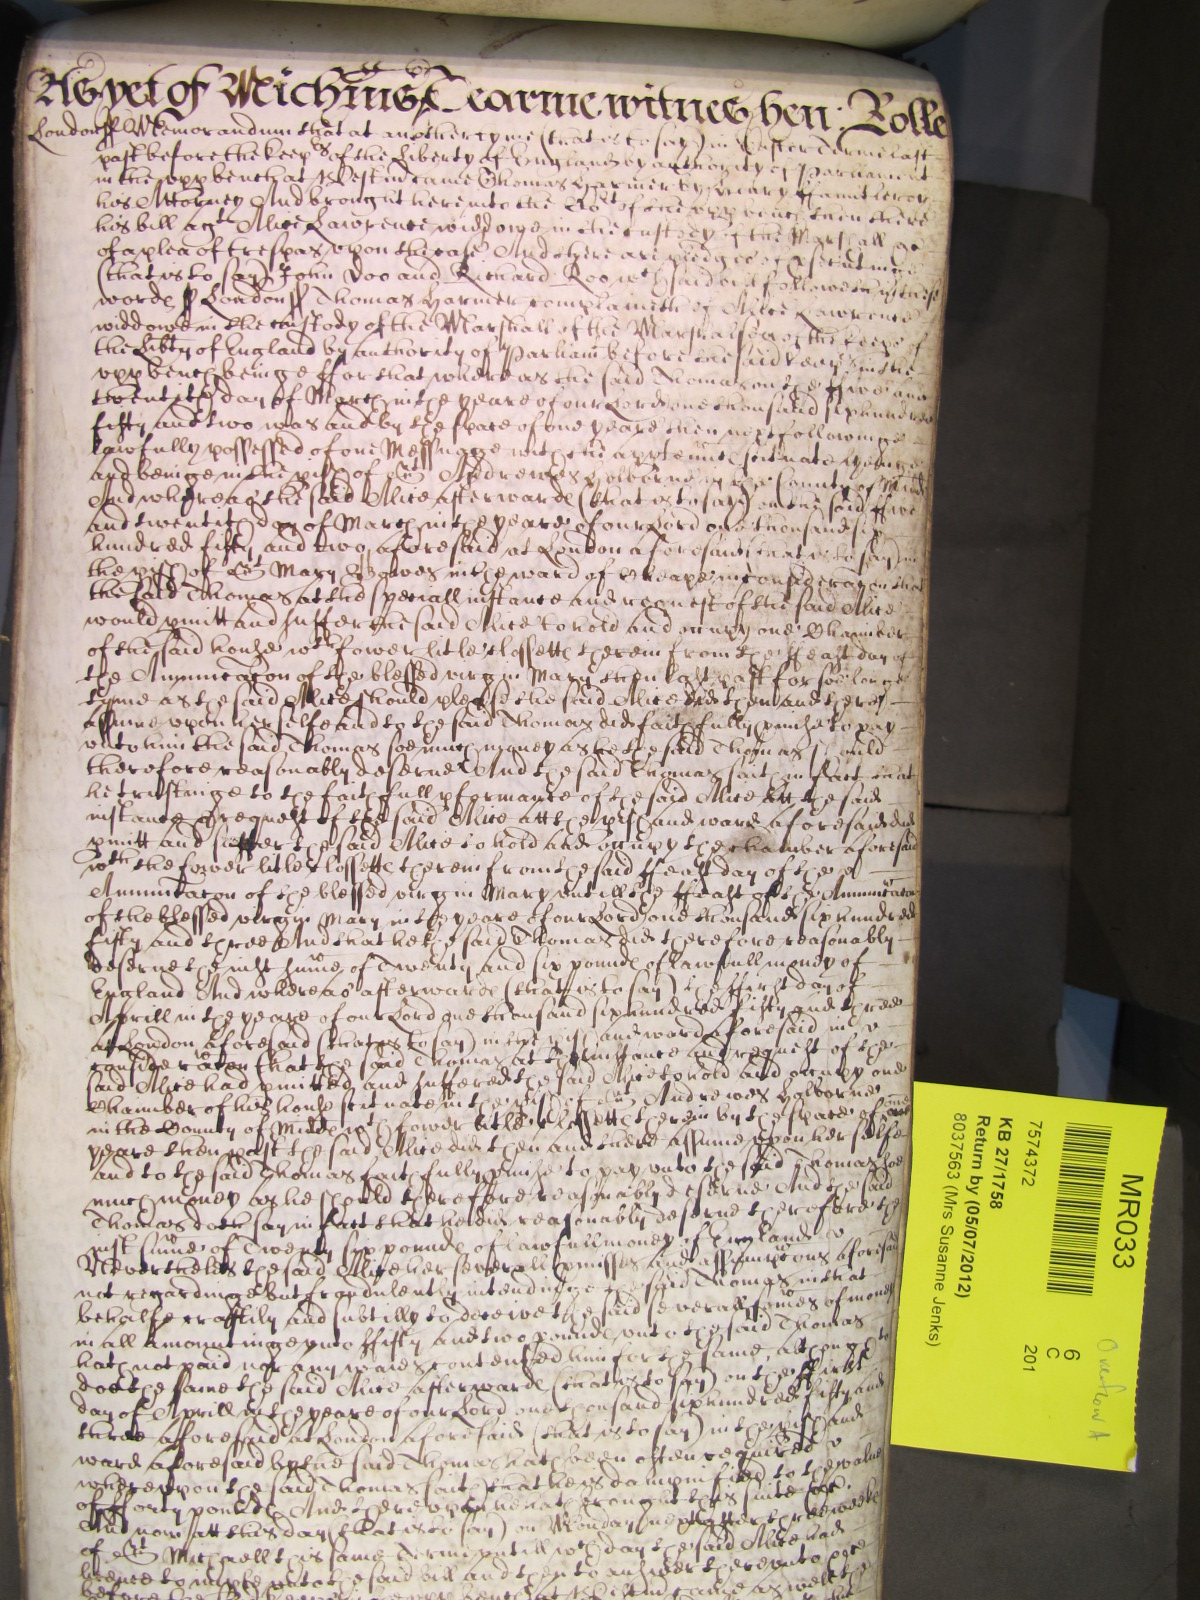 As yet of Michms Tearme witnes hen: Rolle
London ss Memorandum that at another tyme (that is to say) in Easter Terme last
past before the keeps of the Liberty of England by authority of Parliament
in the upp bench at Westm came Thomas Harmer by
his Attorney And brought here into the Cort of the upp bench then there
his bill agt Alice Lawrence widdowe in the custody of the Marshall &c
of a plea of trespas upon the case And there are pledges of
(that is to say) John Doo and Richard Roo wch said bill followeth in these
words ss London ss Thomas Harmer complaineth of Alice Lawrence
widdowe in the custody of the Marshall of the Marshalsea of the keeps of
the Libty of England by authority of Parliamt before the said keeps in the
upp bench beinge ffor that whereas the said Thomas on the ffive and
twentith day of March in the yeare of our Lord one thousand six hundred
fifty and two was and by the space of one yeare then next followinge
lawfully possessed of one Messuage with the apptennces scituate lyinge
and beinge in the pish of St Andrewes Holborne in the County of Midd
And whereas the said Alice afterwards (that is to say) on the said ffive
and twentith day of March in the yeare of our Lord one thousand six
hundred fifty and two aforesaid at London aforesaid (that is to say) in
the pish of St Mary Bowes in the ward of Cheape in consideracon that
the said Thomas at the speciall instance and request of the said Alice
would pmitt and suffer the said Alice to hold and occupy one Chamber
of the said house wth fower little clossetts therein from the ffeast day of
the Annunciacon of the blessed virgin Mary then last past for soe longe
tyme as the said Alice should please the said Alice did then and there
assume upon her selfe and to the said Thomas did faithfully pmise to pay
unto him the said Thomas soe much money as he the said Thomas should
therefore reasonably deserve And the said Thomas saith in fact that
he trustinge to the faithfull pformance of the said Alice att the said
instance & request of the said Alice att the pish and ward aforesaid did
pmitt and suffer the said Alice to hold and occupy the chamber aforesaid
wth the fower little clossetts therein from the said ffeast day of the
Annunciacon of the blessed virgin Mary untill the ffeast of the Annunciacon
of the blessed virgin Mary in the yeare of our Lord one thousand six hundred
fifty and three And that he the said Thomas did therefore reasonably
deserve the just summe of Twenty and six pounds of lawfull money of
England And whereas afterwards (that is to say) the first day of
Aprill in the yeare of our Lord one thousand six hundred fifty and three
at London aforesaid (that is to say) in the pish and ward aforesaid in
consideracon that the said Thomas at the instance and request of the
said Alice had pmitted and suffered the said Alice to hold and occupy one
Chamber of his house scituate in the pish of St Andrewes Holborne
in the County of Middx wth fower little clossetts therein by the space of one
yeare then past the said Alice did then and there assume upon her selfe
and to the said Thomas faithfully pmise to pay unto the said Thomas soe
much money as he should therefore reasonably deserve And the said
Thomas doth say in fact that he did reasonably deserve therefore the
just summe of Twenty six pounds of lawfull money of England
Neverthelesse the said Alice her severall pmisses and assumpcons aforesaid
not regardinge but fraudulently intendinge the said Thomas in that
behalfe craftily and subtilly to deceive the said severall somes of money
in all amountinge unto fifty and two pounds unto the said Thomas
hath not paid nor any waies contented him for the same although to
doe the same the said Alice afterwards (that is to say) on the ffirst
day of Aprill in the yeare of our Lord one thousand six hundred fifty and
three aforesaid at London aforesaid (that is to say) in the pish and
ward aforesaid by the said Thomas hath been often required
whereupon the said Thomas saith that he is dampnified to the value
of fforty pounds And thereupon he hath brought this suite &c.
And now att this day (that is to say) on Monday next after three weeks
of St Michaell this same Terme untill wch day the said Alice had
licence to imple unto the said bill and then to answer thereunto &c
before the upp bench at Westm came as well the
MR033
6
C
201
Overflow A
7574372
KB 27/1758
Return by (05/07/2012)
8037563 (Mrs Susanne Jenks)